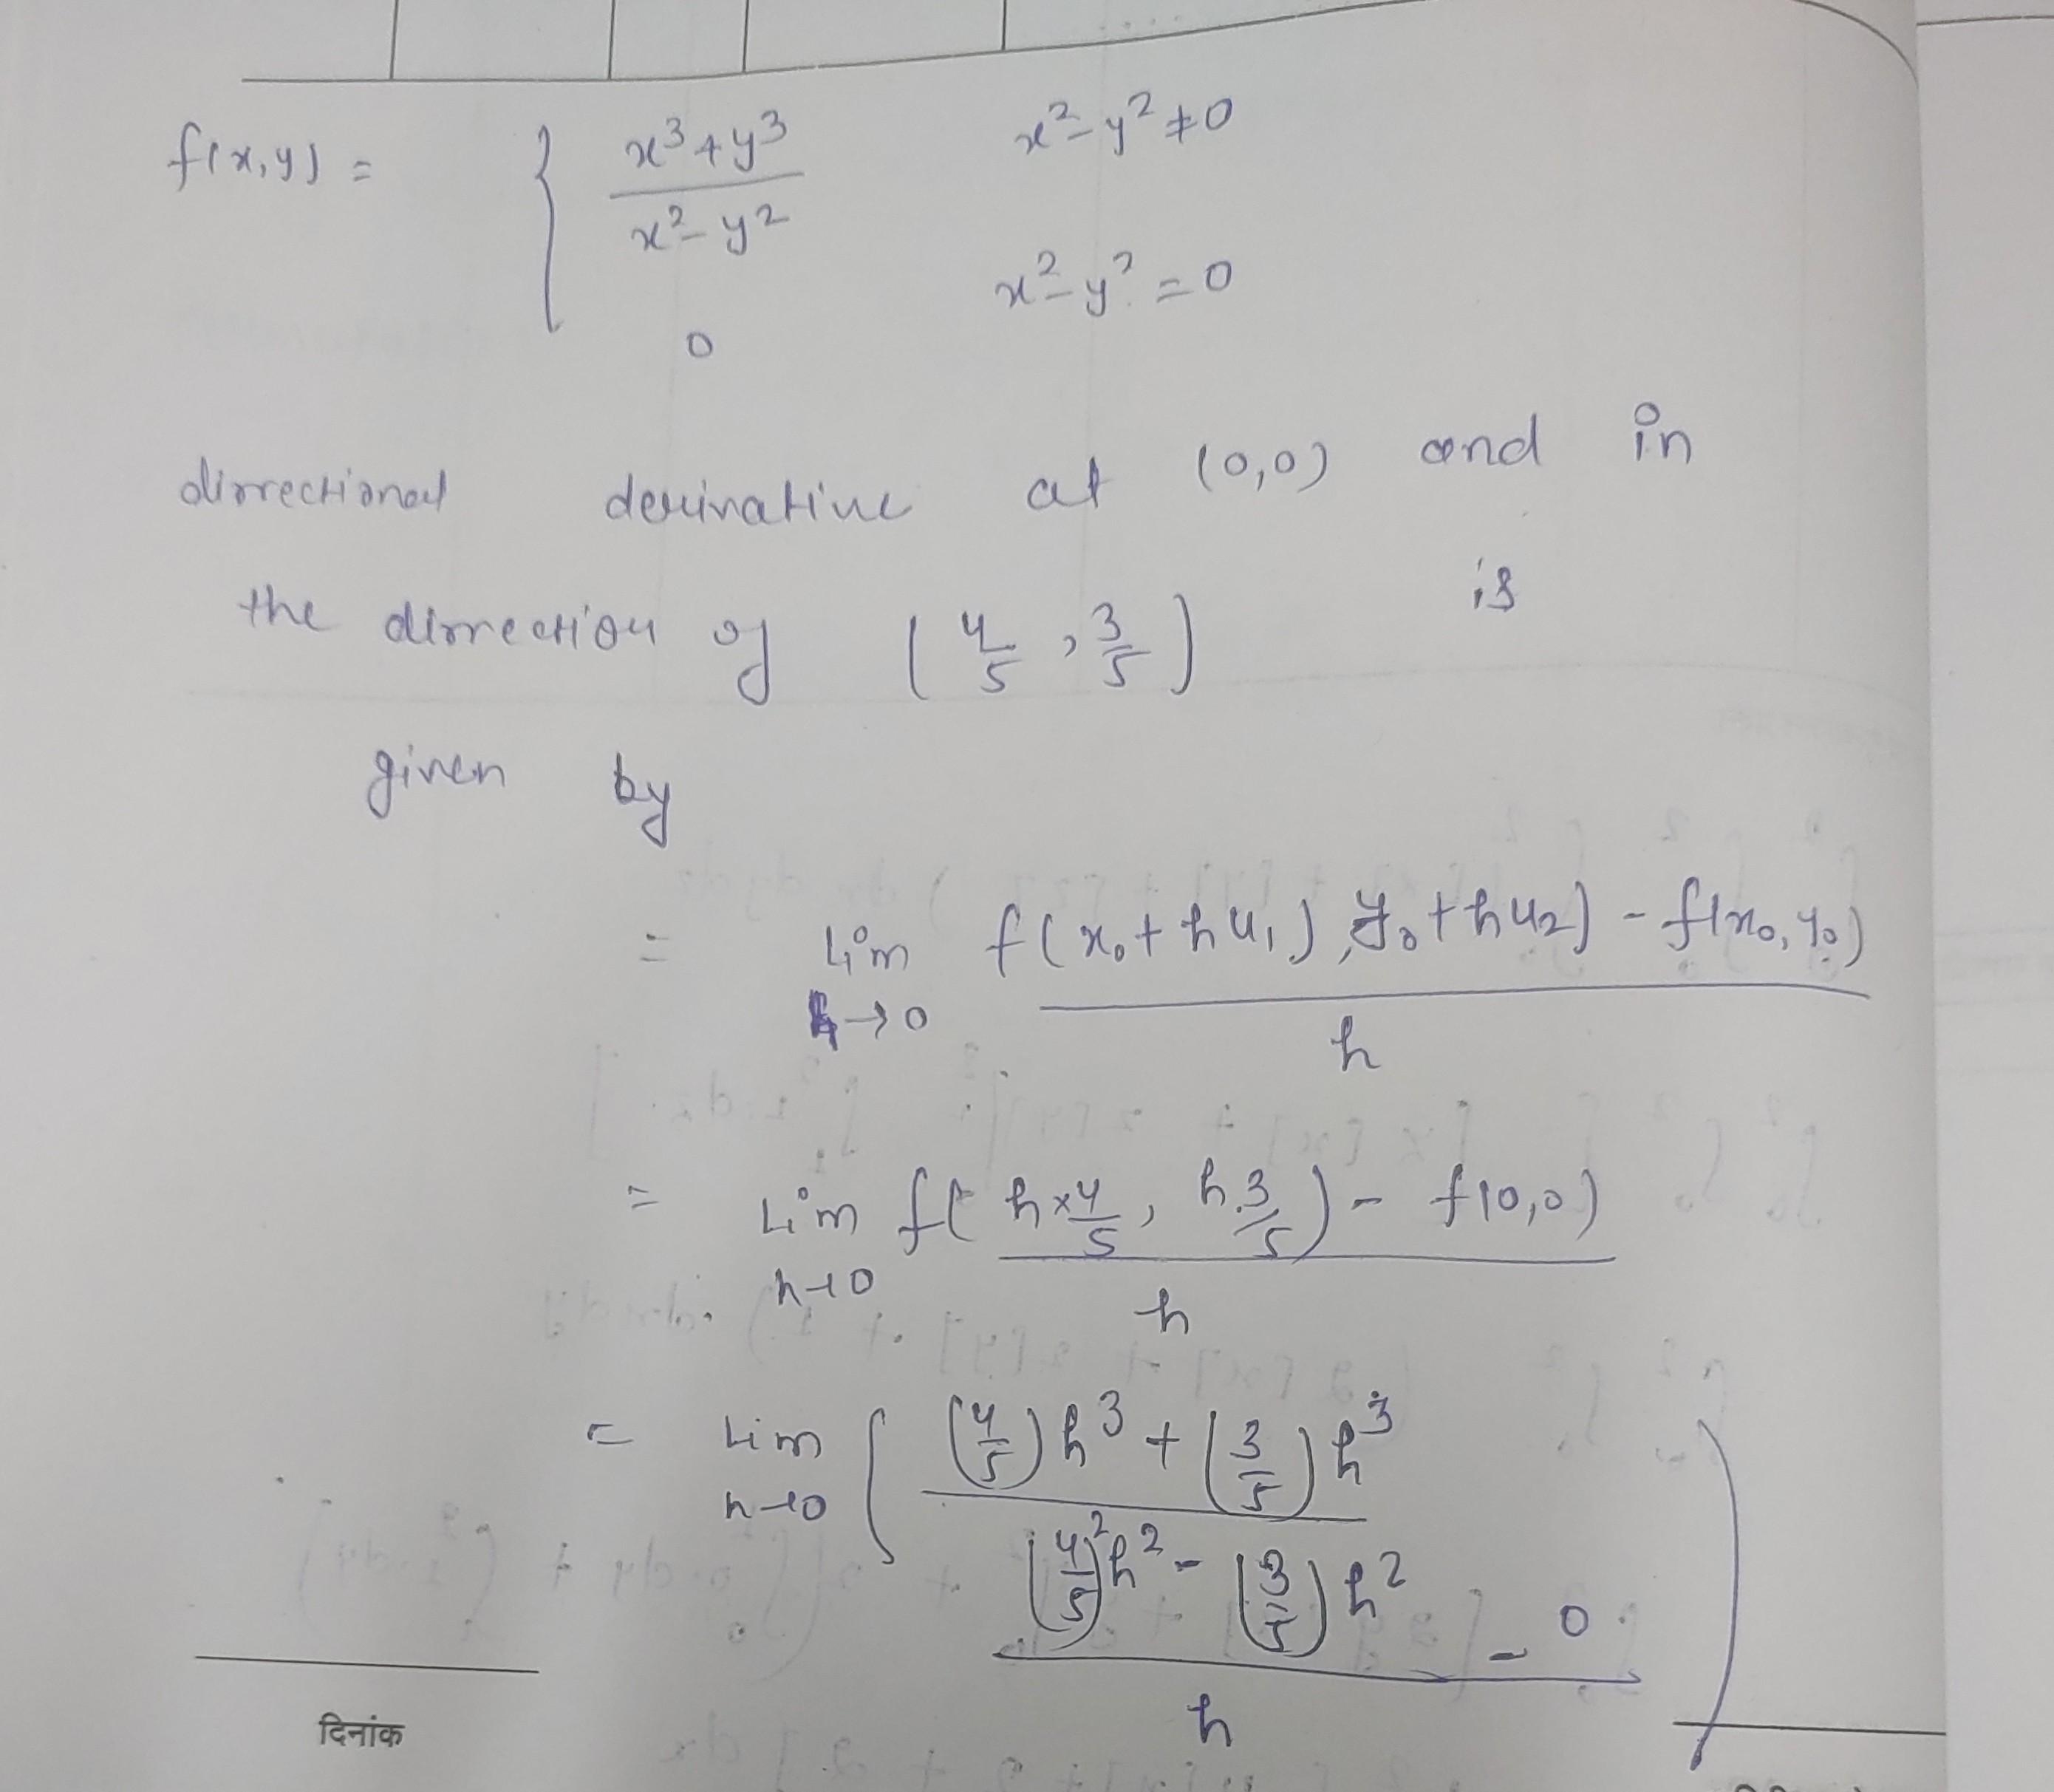 f(x,y) = { x³+y³ / x²-y²    x²-y² ≠ 0
0    x²-y² = 0
dirrectional derivative at (0,0) and in
the dirrection of (4/5, 3/5) is
given by
= Lim h→0 f(x₀+hu₁), y₀+hu₂) - f(x₀,y₀) / h
= Lim h→0 f(h×4/5, h.3/5) - f(0,0) / h
= Lim h→0 ( (4/5)h³ + (3/5)h³ / (4/5)²h² - (3/5)h² - 0 / h )
दिनांक